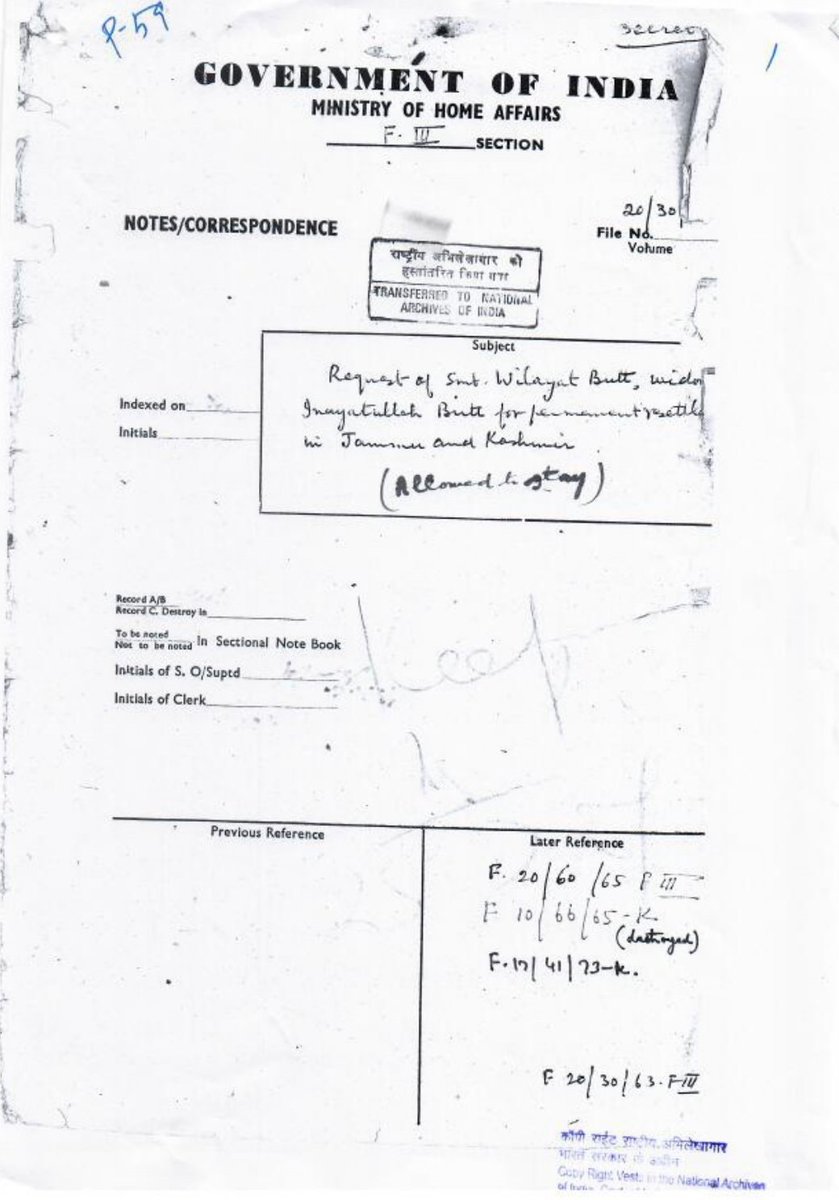 P-59
Secret
1
GOVERNMENT OF INDIA
MINISTRY OF HOME AFFAIRS
F. III SECTION
20/30
File No.
Volume
NOTES/CORRESPONDENCE
राष्ट्रीय अभिलेखागार को
हस्तांतरित किया गया
TRANSFERRED TO NATIONAL
ARCHIVES OF INDIA
Subject
Request of Smt. Wilayat Butt, widow
Inayatullah Butt for permanent resettle
in Jammu and Kashmir
(Allowed to stay)
Indexed on
Initials
Record A/B
Record C. Destroy in
To be noted
Not to be noted In Sectional Note Book
Initials of S. O/Suptd
Initials of Clerk
Keep
Previous Reference
Later Reference
F. 20/60/65 F III
F 10/66/65-K.
(destroyed)
F.17/41/73-K.
F 20/30/63-F III
कॉपी राईट राष्ट्रीय अभिलेखागार
भारत सरकार के अधीन
Copy Right Vests in the National Archives
of India